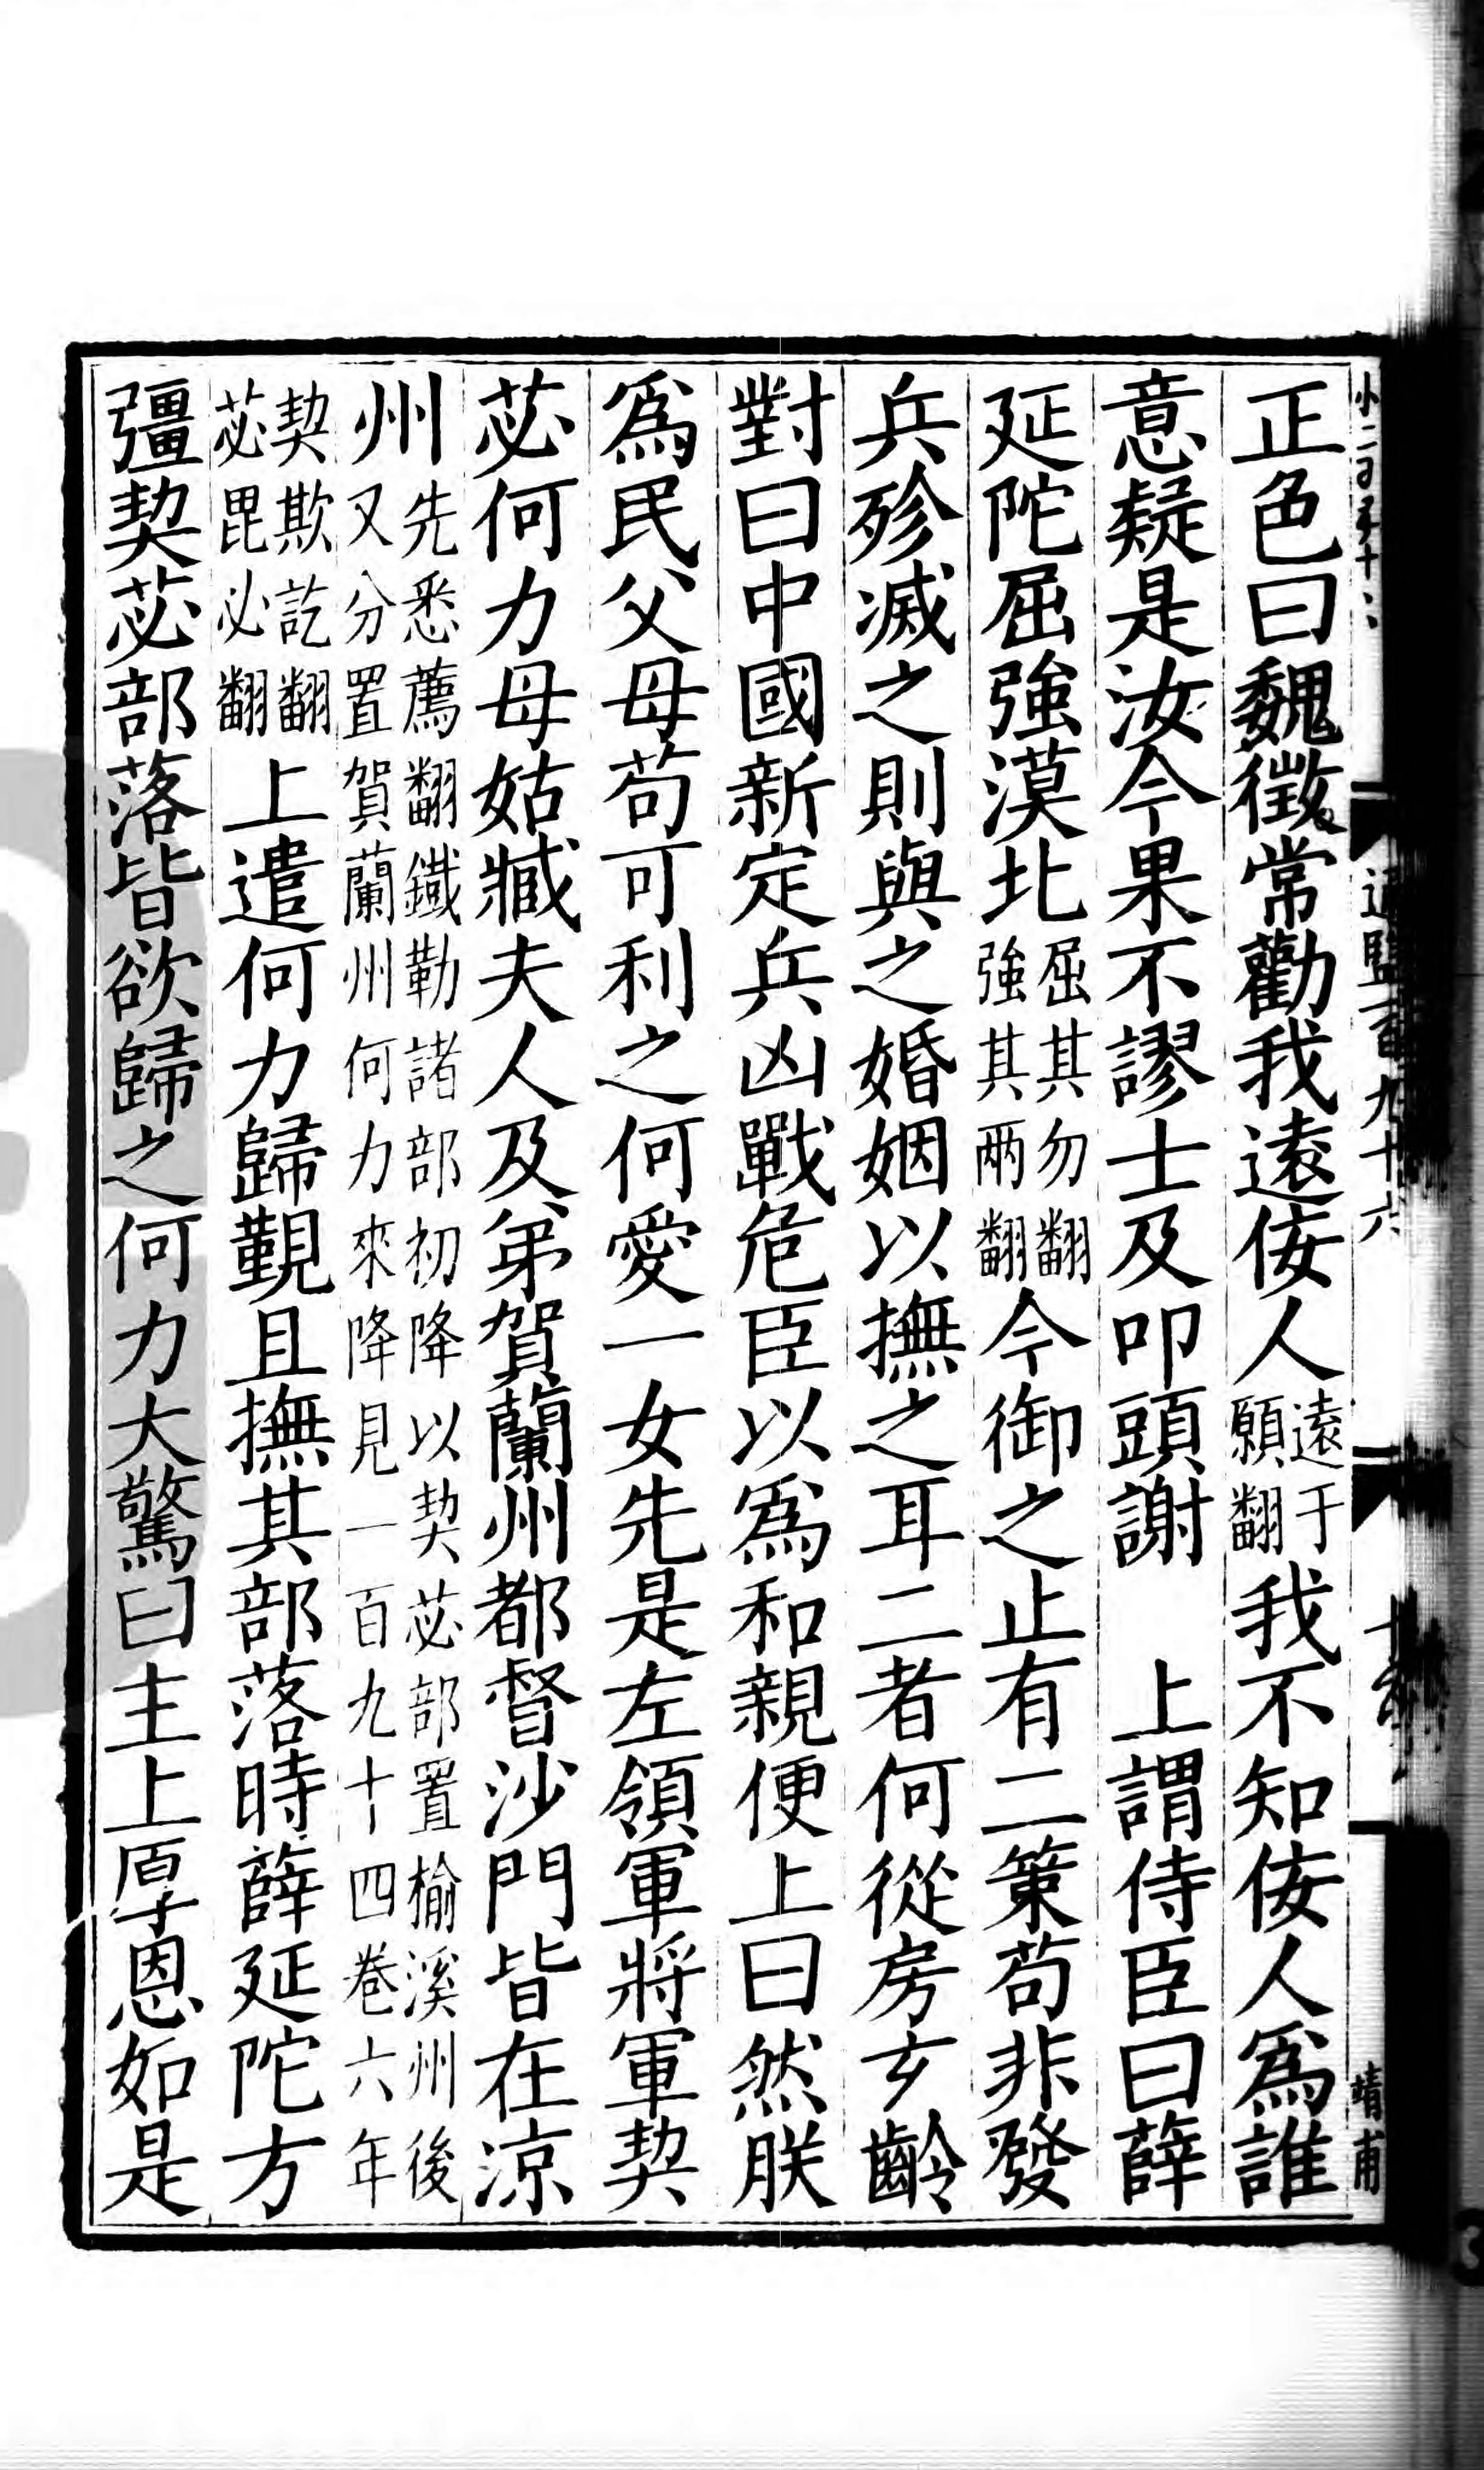 正色曰魏徵常勸我遠佞人遠于願翻我不知佞人爲誰
意疑是汝今果不謬士及叩頭謝　上謂侍臣曰薛
延陀屈強漠北屈其勿翻強其兩翻今御之止有二策苟非發
兵殄滅之則與之婚姻以撫之耳二者何從房玄齡
對曰中國新定兵凶戰危臣以爲和親便上曰然朕
爲民父母苟可利之何愛一女先是左領軍將軍契
苾何力母姑臧夫人及弟賀蘭州都督沙門皆在涼
州先悉薦翻鐵勒諸部初降以契苾部置榆溪州後又分置賀蘭州何力來降見一百九十四卷六年
契欺訖翻苾毘必翻上遣何力歸覲且撫其部落時薛延陀方
彊契苾部落皆欲歸之何力大驚曰主上厚恩如是
通鑑一百九十六
靖甫